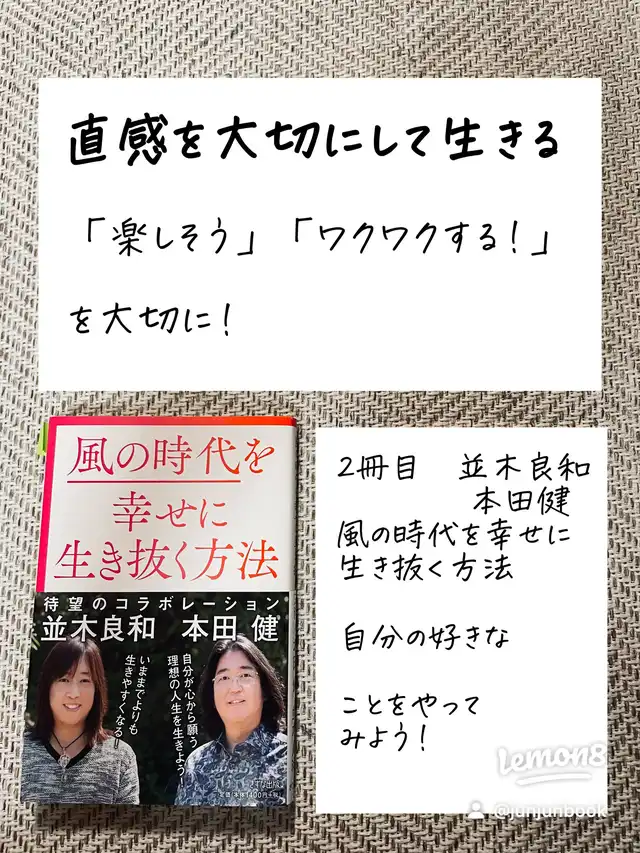 直感を大切にして生きる
「楽しそう」「ワクワクする！」
を大切に！
風の時代を
幸せに
生き抜く方法
待望のコラボレーション
並木良和　本田 健
いままでよりも
生きやすくなる！
自分が心から願う
理想の人生を生きよう！
きずな出版
定価:本体1400円+税
2冊目　並木良和
本田健
風の時代を幸せに
生き抜く方法
自分の好きな
ことをやって
みよう！
lemon8
@junjunbook